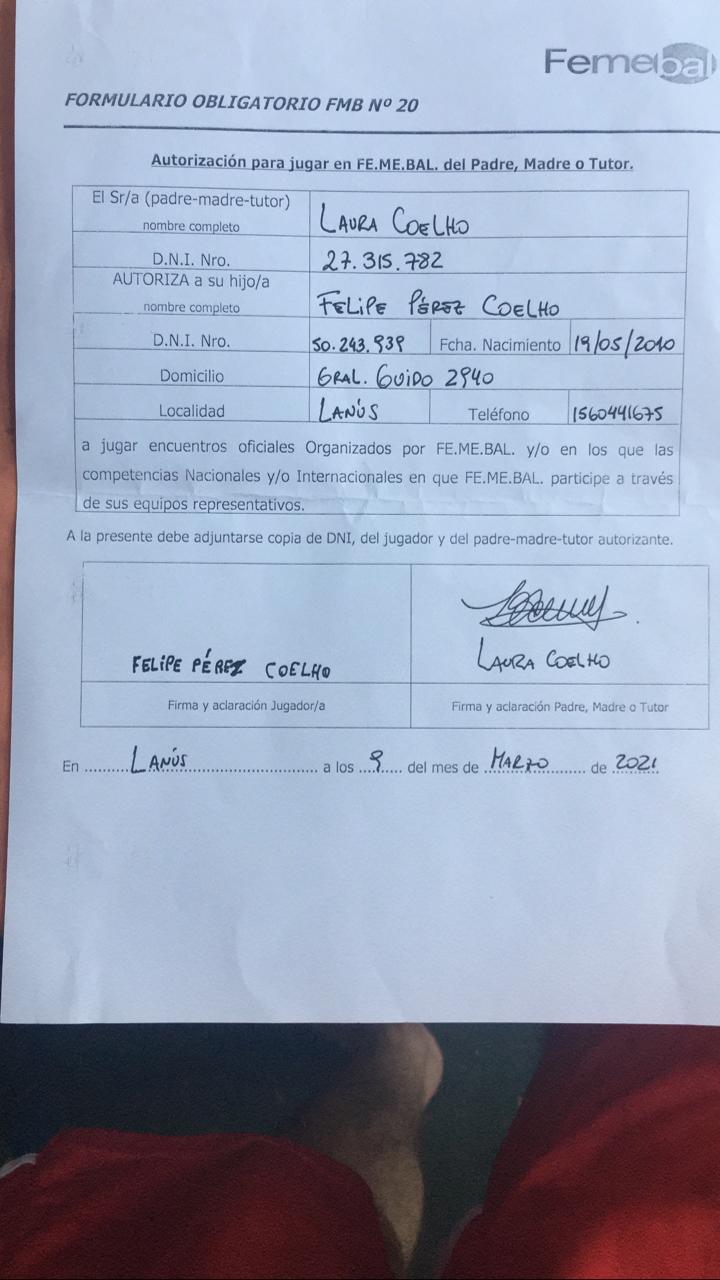 Femebal
FORMULARIO OBLIGATORIO FMB Nº 20
Autorización para jugar en FE.ME.BAL. del Padre, Madre o Tutor.
El Sr/a (padre-madre-tutor)
nombre completo
LAURA COELHO
D.N.I. Nro.
27.315.782
AUTORIZA a su hijo/a
nombre completo
FELIPE PÉREZ COELHO
D.N.I. Nro.
50.243.939
Fcha. Nacimiento
19/05/2010
Domicilio
GRAL. GUIDO 2940
Localidad
LANÚS
Teléfono
1560441675
a jugar encuentros oficiales Organizados por FE.ME.BAL. y/o en los que las
competencias Nacionales y/o Internacionales en que FE.ME.BAL. participe a través
de sus equipos representativos.
A la presente debe adjuntarse copia de DNI, del jugador y del padre-madre-tutor autorizante.
FELIPE PÉREZ COELHO
LAURA COELHO
Firma y aclaración Jugador/a
Firma y aclaración Padre, Madre o Tutor
En ..........LANÚS................................ a los ....9..... del mes de ..MARZO........... de 2021